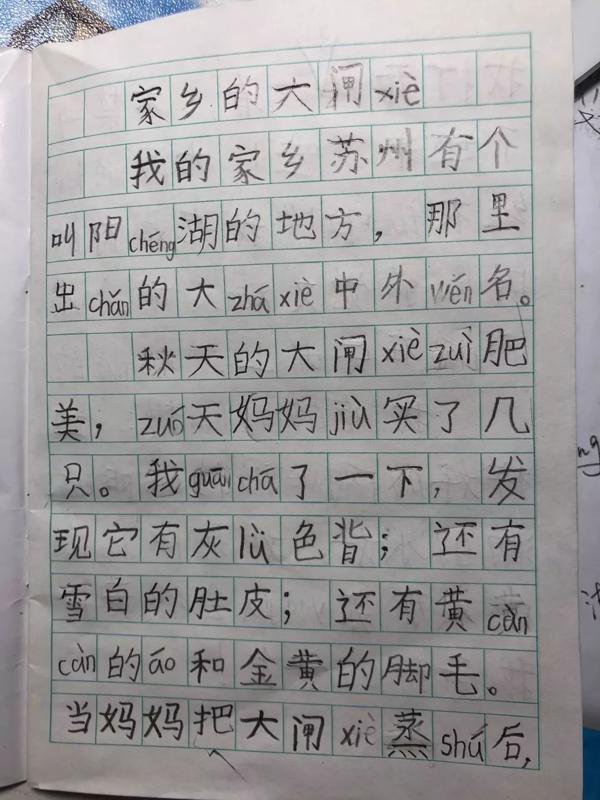 家乡的大闸xiè
我的家乡苏州有个
叫阳chéng湖的地方，那里
出chǎn的大zháxiè中外wén名。
秋天的大闸xièzuì肥
美，zuó天妈妈jiù买了几
只。我guānchá了一下，发
现它有灰lǜ色背；还有
雪白的肚皮；还有黄càn
càn的áo和金黄的脚毛。
当妈妈把大闸xiè蒸shú后，